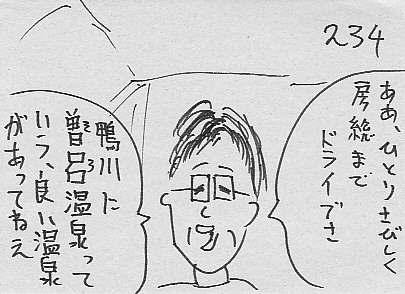 234
ああ、ひとりさびしく
房総まで
ドライブさ
鴨川に
曽呂温泉って
そろ
いう、良い温泉
があってねえ